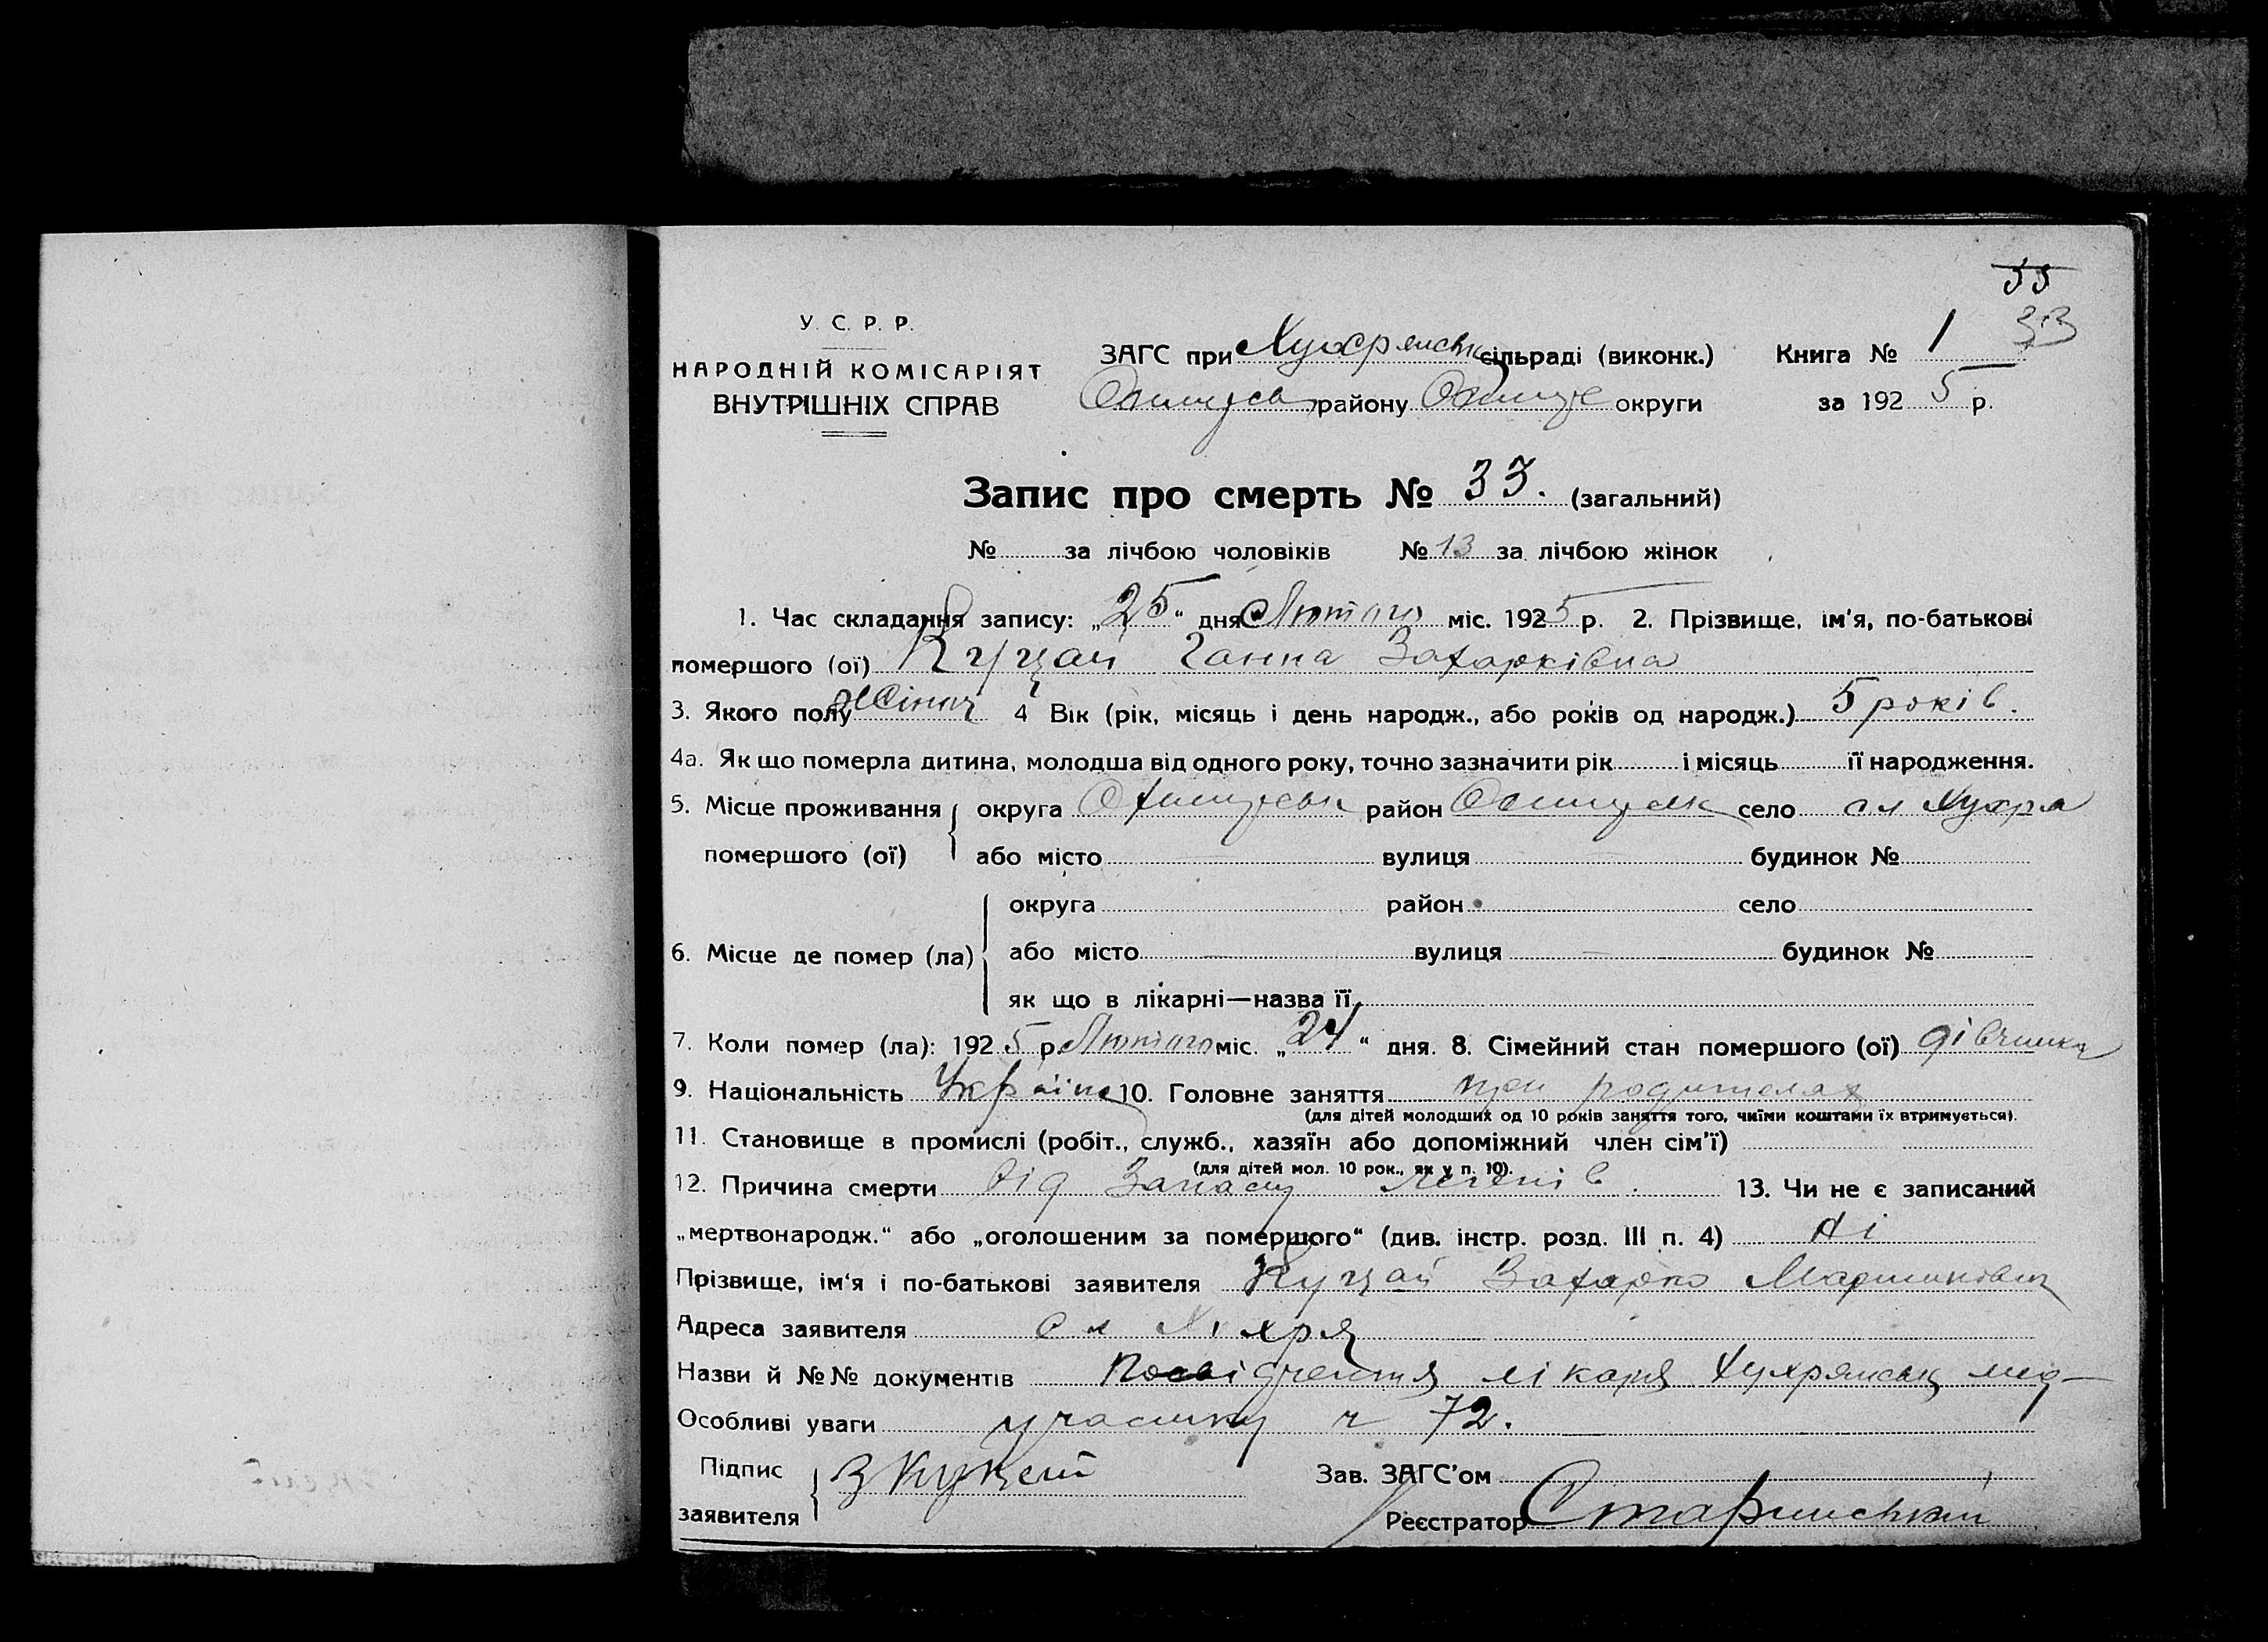 33
У. С. Р. Р.
НАРОДНІЙ КОМІСАРІЯТ
ВНУТРІШНІХ СПРАВ
ЗАГС при Хухрянськ сільраді (виконк.) Книга № 1 33
району округи за 1925 р.
Запис про смерть № 33. (загальний)
№ за лічбою чоловіків № 13 за лічбою жінок
1. Час складання запису: „25“ дня Лютого міс. 1925 р. 2. Прізвище, ім'я, по-батькові
помершого (ої) Куцай Ганна Захарківна
3. Якого полу жіноч 4 Вік (рік, місяць і день народж., або років од народж.) 5 років.
4а. Як що померла дитина, молодша від одного року, точно зазначити рік і місяць її народження.
5. Місце проживання округа Охтирськ район село сл Хухра
помершого (ої) або місто вулиця будинок №
округа район село
6. Місце де помер (ла) або місто вулиця будинок №
як що в лікарні—назва її
7. Коли помер (ла): 1925 р. Лютого міс. „24“ дня. 8. Сімейний стан помершого (ої) дівчинка
9. Національність 10. Головне заняття при родителях
(для дітей молодших од 10 років заняття того, чиїми коштами їх втримується).
11. Становище в промислі (робіт., служб., хазяїн або допоміжний член сім'ї)
(для дітей мол. 10 рок., як у п. 10).
12. Причина смерти від Запалу легенів. 13. Чи не є записаний
„мертвонародж.“ або „оголошеним за помершого“ (див. інстр. розд. III п. 4) Ні
Прізвище, ім'я і по-батькові заявителя Куцай Захарко Мартинович
Адреса заявителя сл Хухря
Назви й №№ документів Посвідчення лікаря Хухрянськ мед-
Особливі уваги участку ч 72.
Підпис З Куцай Зав. ЗАГС'ом
заявителя Реєстратор